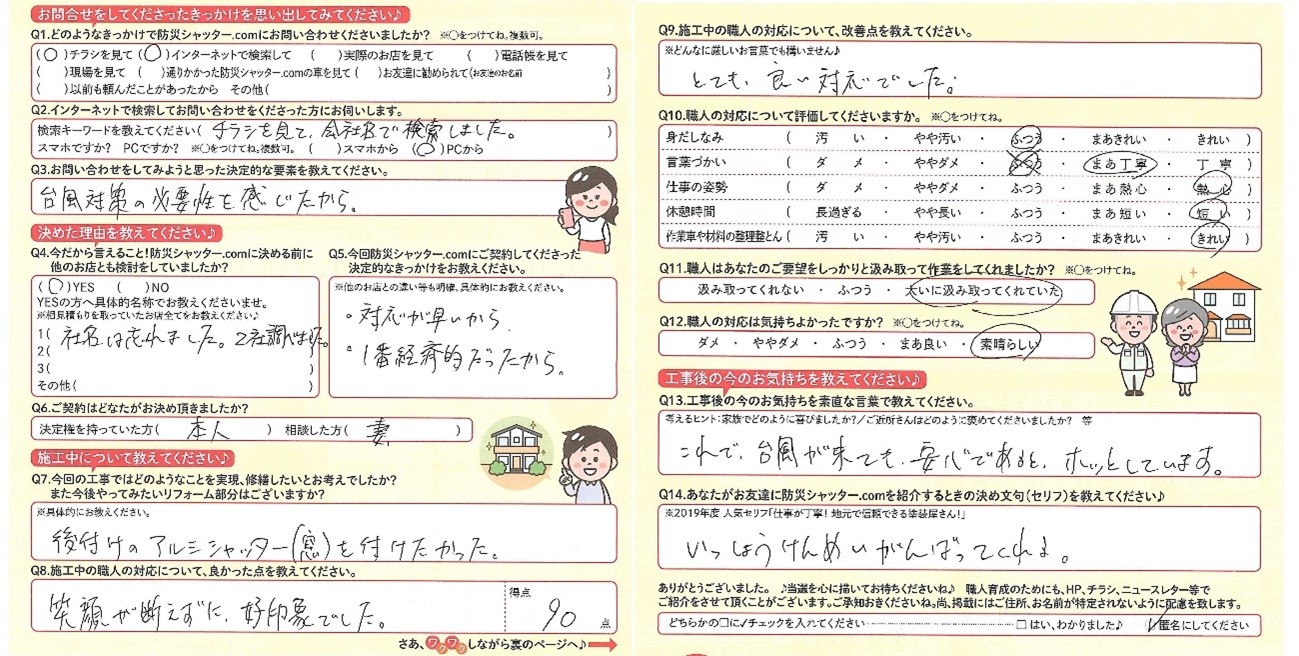 お問合せをしてくださったきっかけを思い出してみてください♪
Q1.どのようなきっかけで防災シャッター.comにお問い合わせくださいましたか? ※○をつけてね。複数可。
(○)チラシを見て (○)インターネットで検索して ( )実際のお店を見て ( )電話帳を見て
( )現場を見て ( )通りかかった防災シャッター.comの車を見て ( )お友達に勧められて(お友達のお名前 )
( )以前も頼んだことがあったから その他( )
Q2.インターネットで検索してお問い合わせをくださった方にお伺いします。
検索キーワードを教えてください( チラシを見て、会社名で検索しました。 )
スマホですか? PCですか? ※○をつけてね。複数可。 ( )スマホから (○)PCから
Q3.お問い合わせをしてみようと思った決定的な要素を教えてください。
台風対策の必要性を感じたから。
決めた理由を教えてください♪
Q4.今だから言えること!防災シャッター.comに決める前に
他のお店とも検討をしていましたか?
(○)YES ( )NO
YESの方へ具体的名称でお教えくださいませ。
※相見積もりを取っていたお店全てをお教えください♪
1( 社名は忘れました。2社調べました。
2( )
3( )
その他( )
Q5.今回防災シャッター.comにご契約してくださった
決定的なきっかけをお教えください。
※他のお店との違い等も明確、具体的にお教えください。
・対応が早いから
・1番経済的だったから。
Q6.ご契約はどなたがお決め頂きましたか?
決定権を持っていた方( 本人 ) 相談した方( 妻 )
施工中について教えてください♪
Q7.今回の工事ではどのようなことを実現、修繕したいとお考えでしたか?
また今後やってみたいリフォーム部分はございますか?
※具体的にお教えください。
後付けのアルミシャッター(窓)を付けたかった。
Q8.施工中の職人の対応について、良かった点を教えてください。
笑顔が断えずに、好印象でした。
得点
90 点
さあ、ワクワクしながら裏のページへ♪
Q9.施工中の職人の対応について、改善点を教えてください。
※どんなに厳しいお言葉でも構いません♪
とても、良い対応でした。
Q10.職人の対応について評価してくださいますか。 ※○をつけてね。
身だしなみ ( 汚い ・ やや汚い ・ ふつう ・ まあきれい ・ きれい )
言葉づかい ( ダメ ・ ややダメ ・ ふつう ・ まあ丁寧 ・ 丁寧 )
仕事の姿勢 ( ダメ ・ ややダメ ・ ふつう ・ まあ熱心 ・ 熱心 )
休憩時間 ( 長過ぎる ・ やや長い ・ ふつう ・ まあ短い ・ 短い )
作業車や材料の整理整とん ( 汚い ・ やや汚い ・ ふつう ・ まあきれい ・ きれい )
Q11.職人はあなたのご要望をしっかりと汲み取って作業をしてくれましたか? ※○をつけてね。
汲み取ってくれない ・ ふつう ・ 大いに汲み取ってくれていた
Q12.職人の対応は気持ちよかったですか? ※○をつけてね。
ダメ ・ ややダメ ・ ふつう ・ まあ良い ・ 素晴らしい
工事後の今のお気持ちを教えてください♪
Q13.工事後の今のお気持ちを素直な言葉で教えてください。
考えるヒント:家族でどのように喜びましたか?/ご近所さんはどのように褒めてくださいましたか? 等
これで、台風が来ても、安心であると、ホッとしています。
Q14.あなたがお友達に防災シャッター.comを紹介するときの決め文句(セリフ)を教えてください♪
※2019年度 人気セリフ「仕事が丁寧!地元で信頼できる塗装屋さん!」
いっしょうけんめいがんばってくれるよ。
ありがとうございました。 ♪当選を心に描いてお待ちくださいね♪ 職人育成のためにも、HP、チラシ、ニュースレター等で
ご紹介をさせて頂くことがございます。ご承知おきくださいね。尚、掲載にはご住所、お名前が特定されないように配慮を致します。
どちらかの□に✓チェックを入れてください □はい、わかりました♪ ✓匿名にしてください